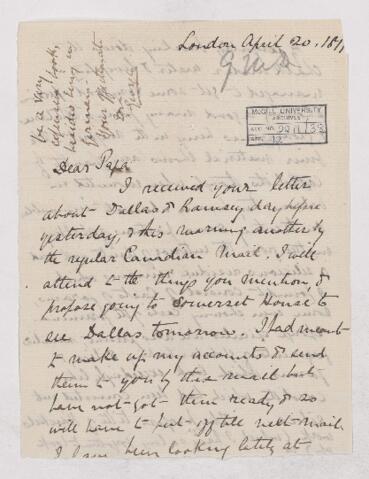 London April 20, 187
G.M.D
McGILL UNIVERSITY
ARCHIVES
ACC. NO.
be a very
expensive book,
besides being in
German
Your affectionate
Son
George
Dear Papa
I received your letter
about Dallas & Ramsey day before
yesterday, & this morning another by
the regular Canadian Mail. I will
attend to the things you mention, &
propose going to Somerset House to
see Dallas tomorrow. I had meant
to make up my accounts & send
them to you by this mail but
have not got them ready & so
will have to put off till next mail.
I have been looking lately at